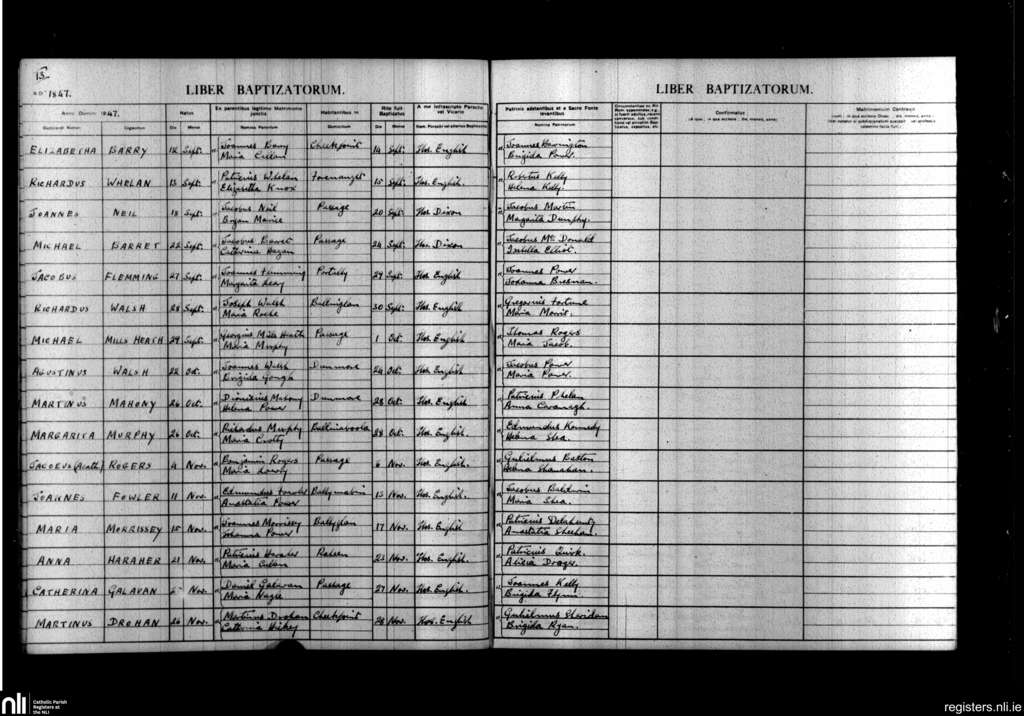 15
AD 1847.
LIBER BAPTIZATORUM.
LIBER BAPTIZATORUM.
Anno Domini 1847.
Natus
Ex parentibus legitimo Matrimonio junctis
Habitantibus in
Rite fuit Baptizatus
A me infrascripto Parocho vel Vicario
Patrinis adstantibus et a Sacro Fonte levantibus
Confirmatus
Matrimonium Contraxit
Baptizandi Nomen
Cognomen
Die
Mense
Nomina Parentum
Domicilium
Die
Mense
Nomina Patrinorum
ELIZABETHA BARRY 12 Sept. Joannes Barry Cheekpoint 14 Sept. Hos. English Joannes
Maria Brigida Power.
RICHARDUS WHELAN 13 Sept. Patricius Whelan 15 Sept. Hos. English. Robertus Kelly
Elizabetha Knox Helena Kelly.
JOANNES NEIL 18 Sept. Jacobus Neil Passage 20 Sept. Hos. Dixon Jacobus Martin
Margarita Dunphy.
MICHAEL BARRET 22 Sept. Jacobus Barret Passage 24 Sept. Hos. Dixon Jacobus McDonald
Catherina Hagan Isabella Elliot.
JACOBUS FLEMMING 27 Sept. Joannes Flemming Portally 29 Sept. Hos. English Joannes Power
Margarita Leary Johanna Brennan.
RICHARDUS WALSH 28 Sept. Joseph Walsh 30 Sept. Hos. English Gregorius Fortune
Maria Roche Maria Morris.
MICHAEL MILLS HEATH 29 Sept. Georgius Mills Heath Passage 1 Oct. Hos. English Thomas Rogers
Maria Murphy Maria Jacob.
AGUSTINUS WALSH 22 Oct. Joannes Walsh Dunmore 24 Oct. Hos. English Jacobus Power
Brigida Gough Maria Power.
MARTINUS MAHONY 26 Oct. Dionisius Mahony Dunmore 28 Oct. Hos. English Patricius Phelan
Helena Power Anna Cavanagh.
MARGARITA MURPHY 26 Oct. Richardus Murphy 28 Oct. Hos. English. Edmundus Kennedy
Maria Crotty Helena Shea.
JACOBUS (Heath) ROGERS 4 Nov. Benjamin Rogers Passage 6 Nov. Hos. English. Gulielmus
Maria Helena Shanahan.
JOANNES FOWLER 11 Nov. Edmundus Fowler 13 Nov. Hos. English. Jacobus Baldwin
Anastatia Power Maria Shea.
MARIA MORRISSEY 15 Nov. Joannes Morrissey 17 Nov. Hos. English Patricius Delahunty
Johanna Power Anastatia Sheehan.
ANNA HARAHER 21 Nov. Patricius Haraher 23 Nov. Hos. English. Patricius Quirk.
Maria Alicia
CATHERINA GALAVAN Nov. Daniel Galavan Passage 27 Nov. Hos. English. Joannes Kelly
Maria Nagle Brigida Flynn
MARTINUS DROHAN 26 Nov. Martinus Drohan Cheekpoint 28 Nov. Hos. English Gulielmus Sheridan
Catherina Hickey Brigida Ryan.
nli
Catholic Parish
Registers at
the NLI
registers.nli.ie